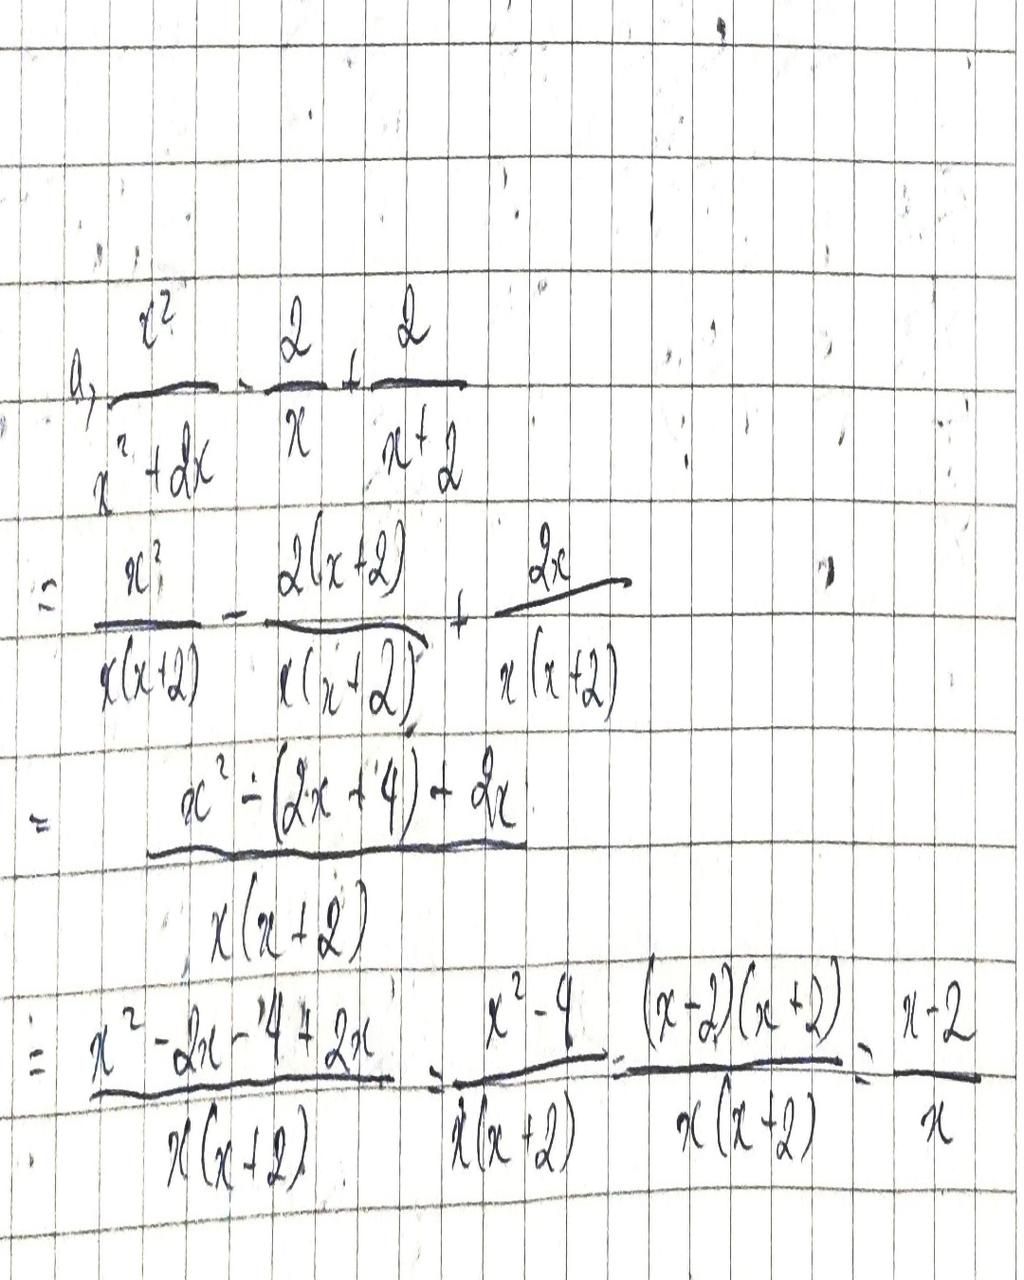 a, x²/(x² + 2x) - 2/x + 2/(x + 2)
= x²/(x(x+2)) - 2(x+2)/(x(x+2)) + 2x/(x(x+2))
= (x² - (2x + 4) + 2x)/(x(x+2))
= (x² - 2x - 4 + 2x)/(x(x+2)) = (x² - 4)/(x(x+2)) = (x-2)(x+2)/(x(x+2)) = (x-2)/x